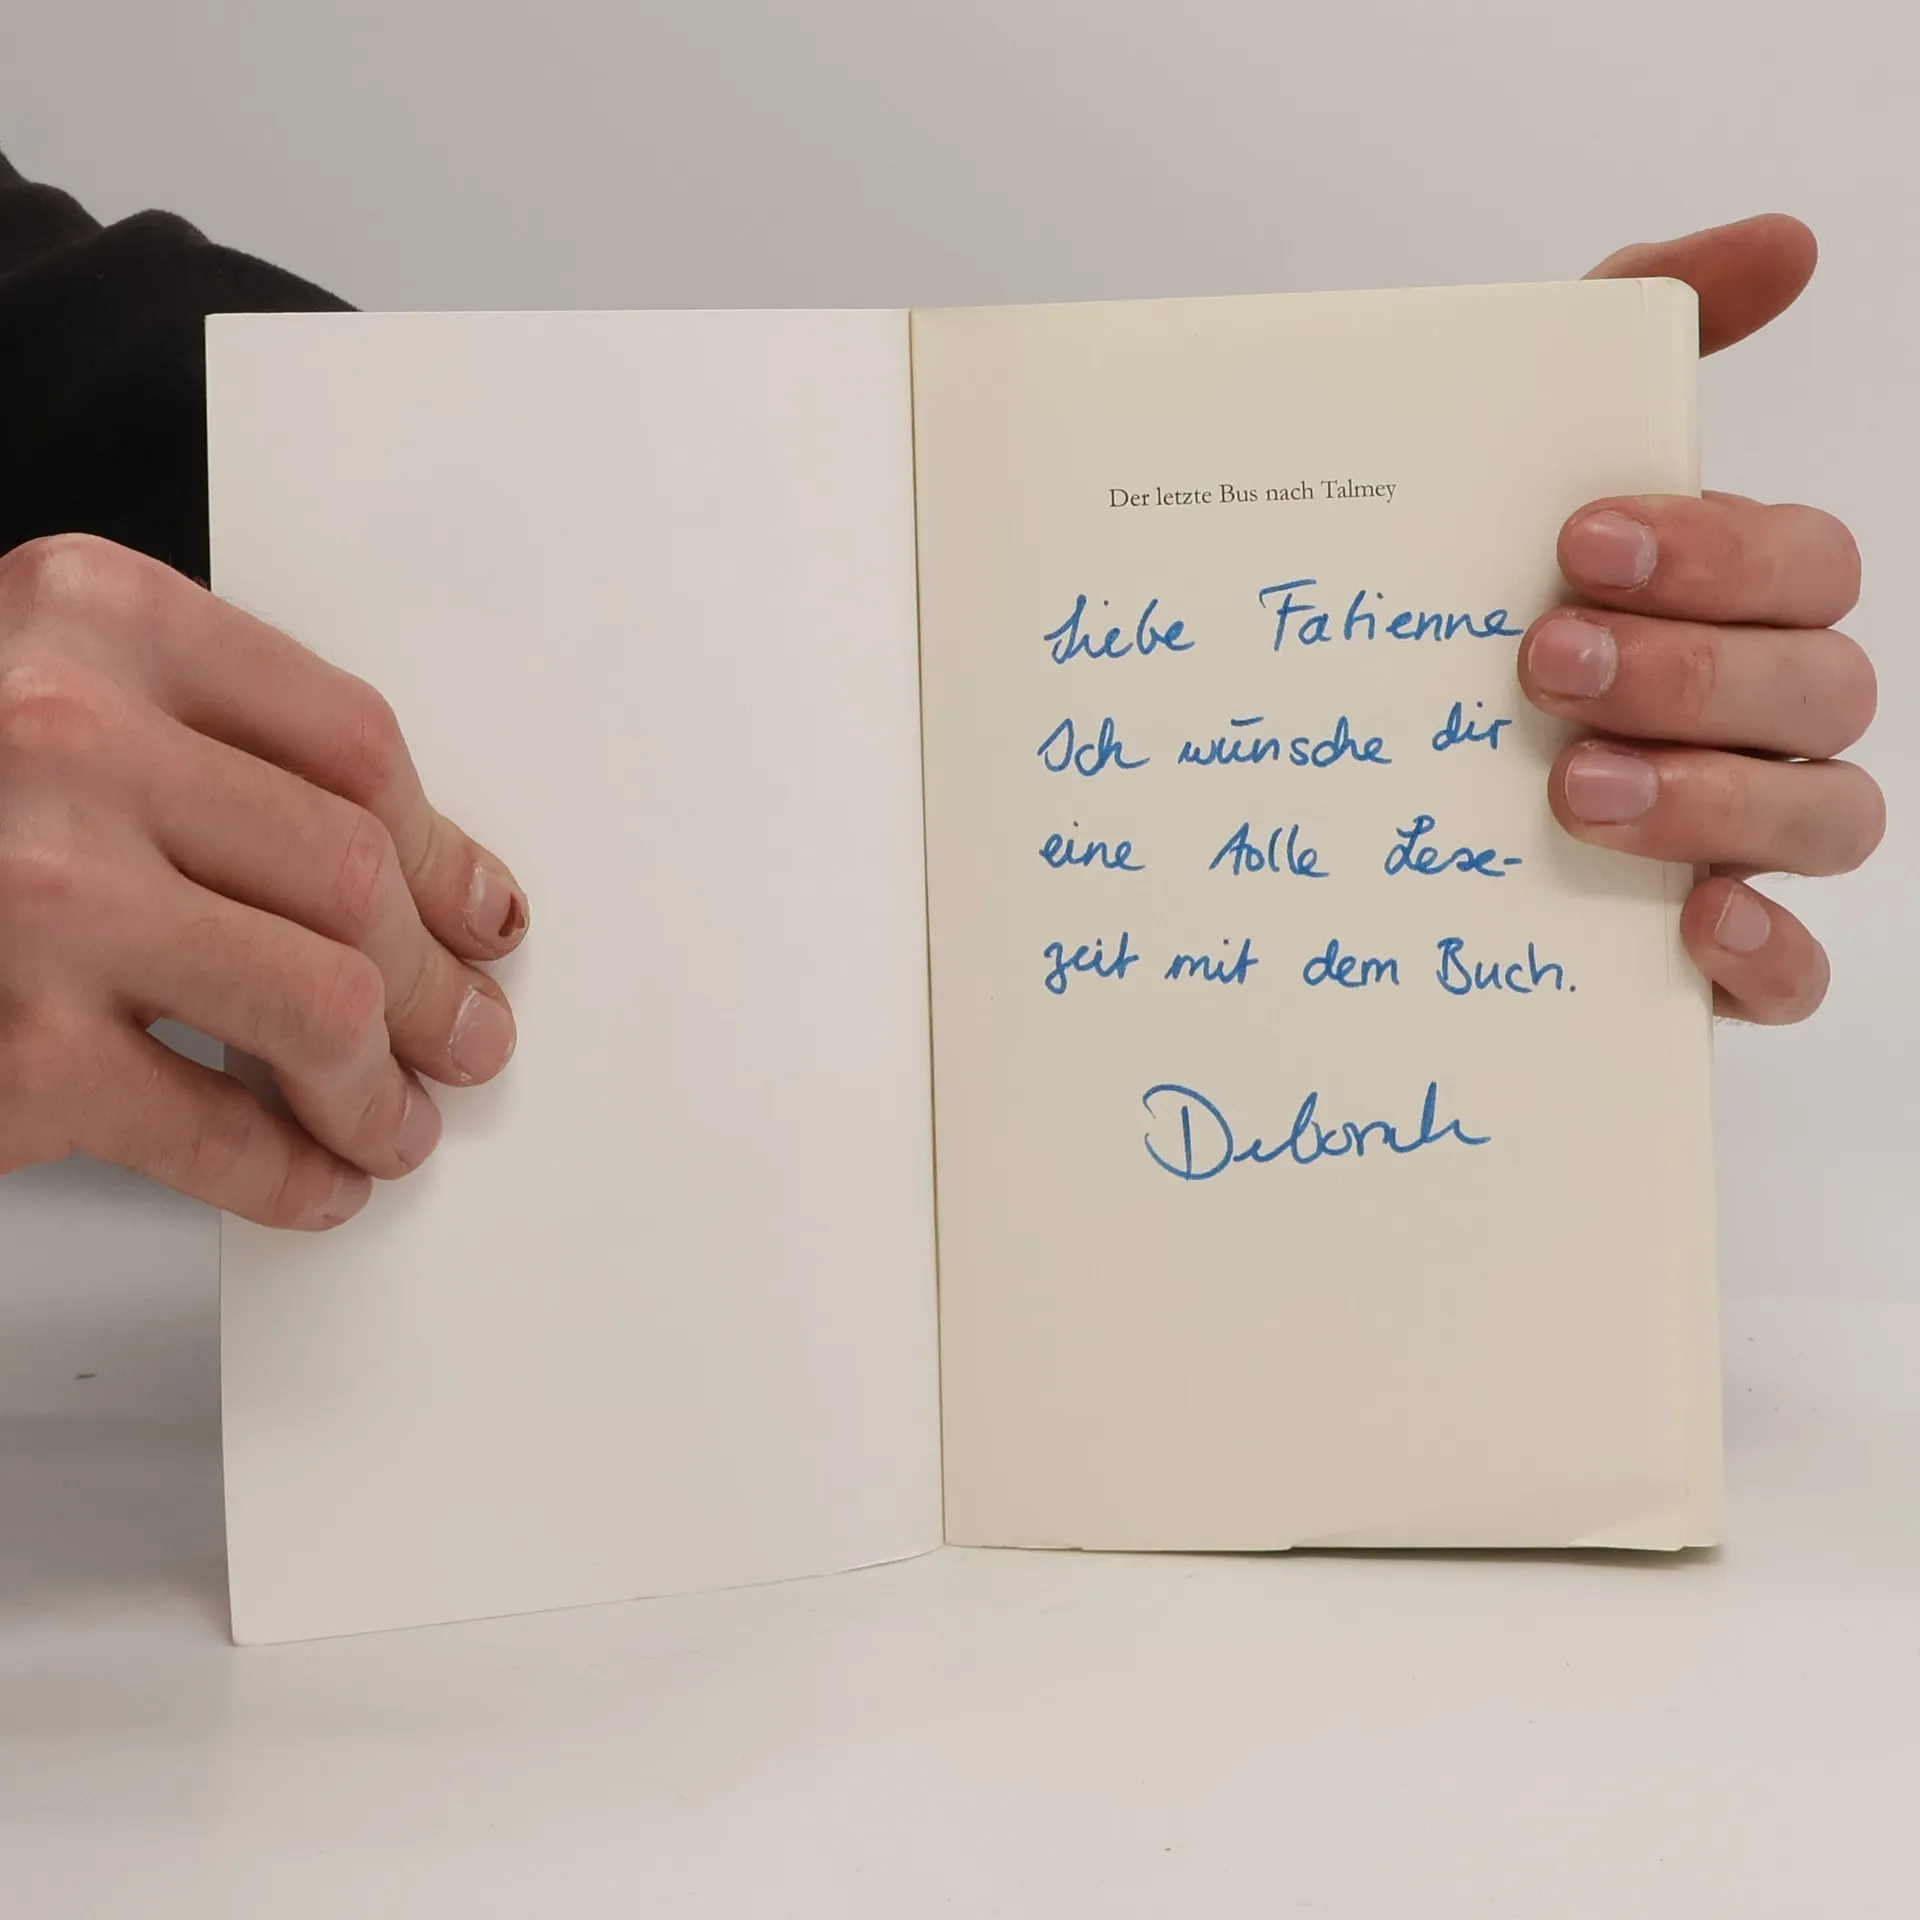 Der letzte Bus nach Talmey
Liebe Fabienne
Ich wünsche dir
eine tolle Lese-
zeit mit dem Buch.
Deborah